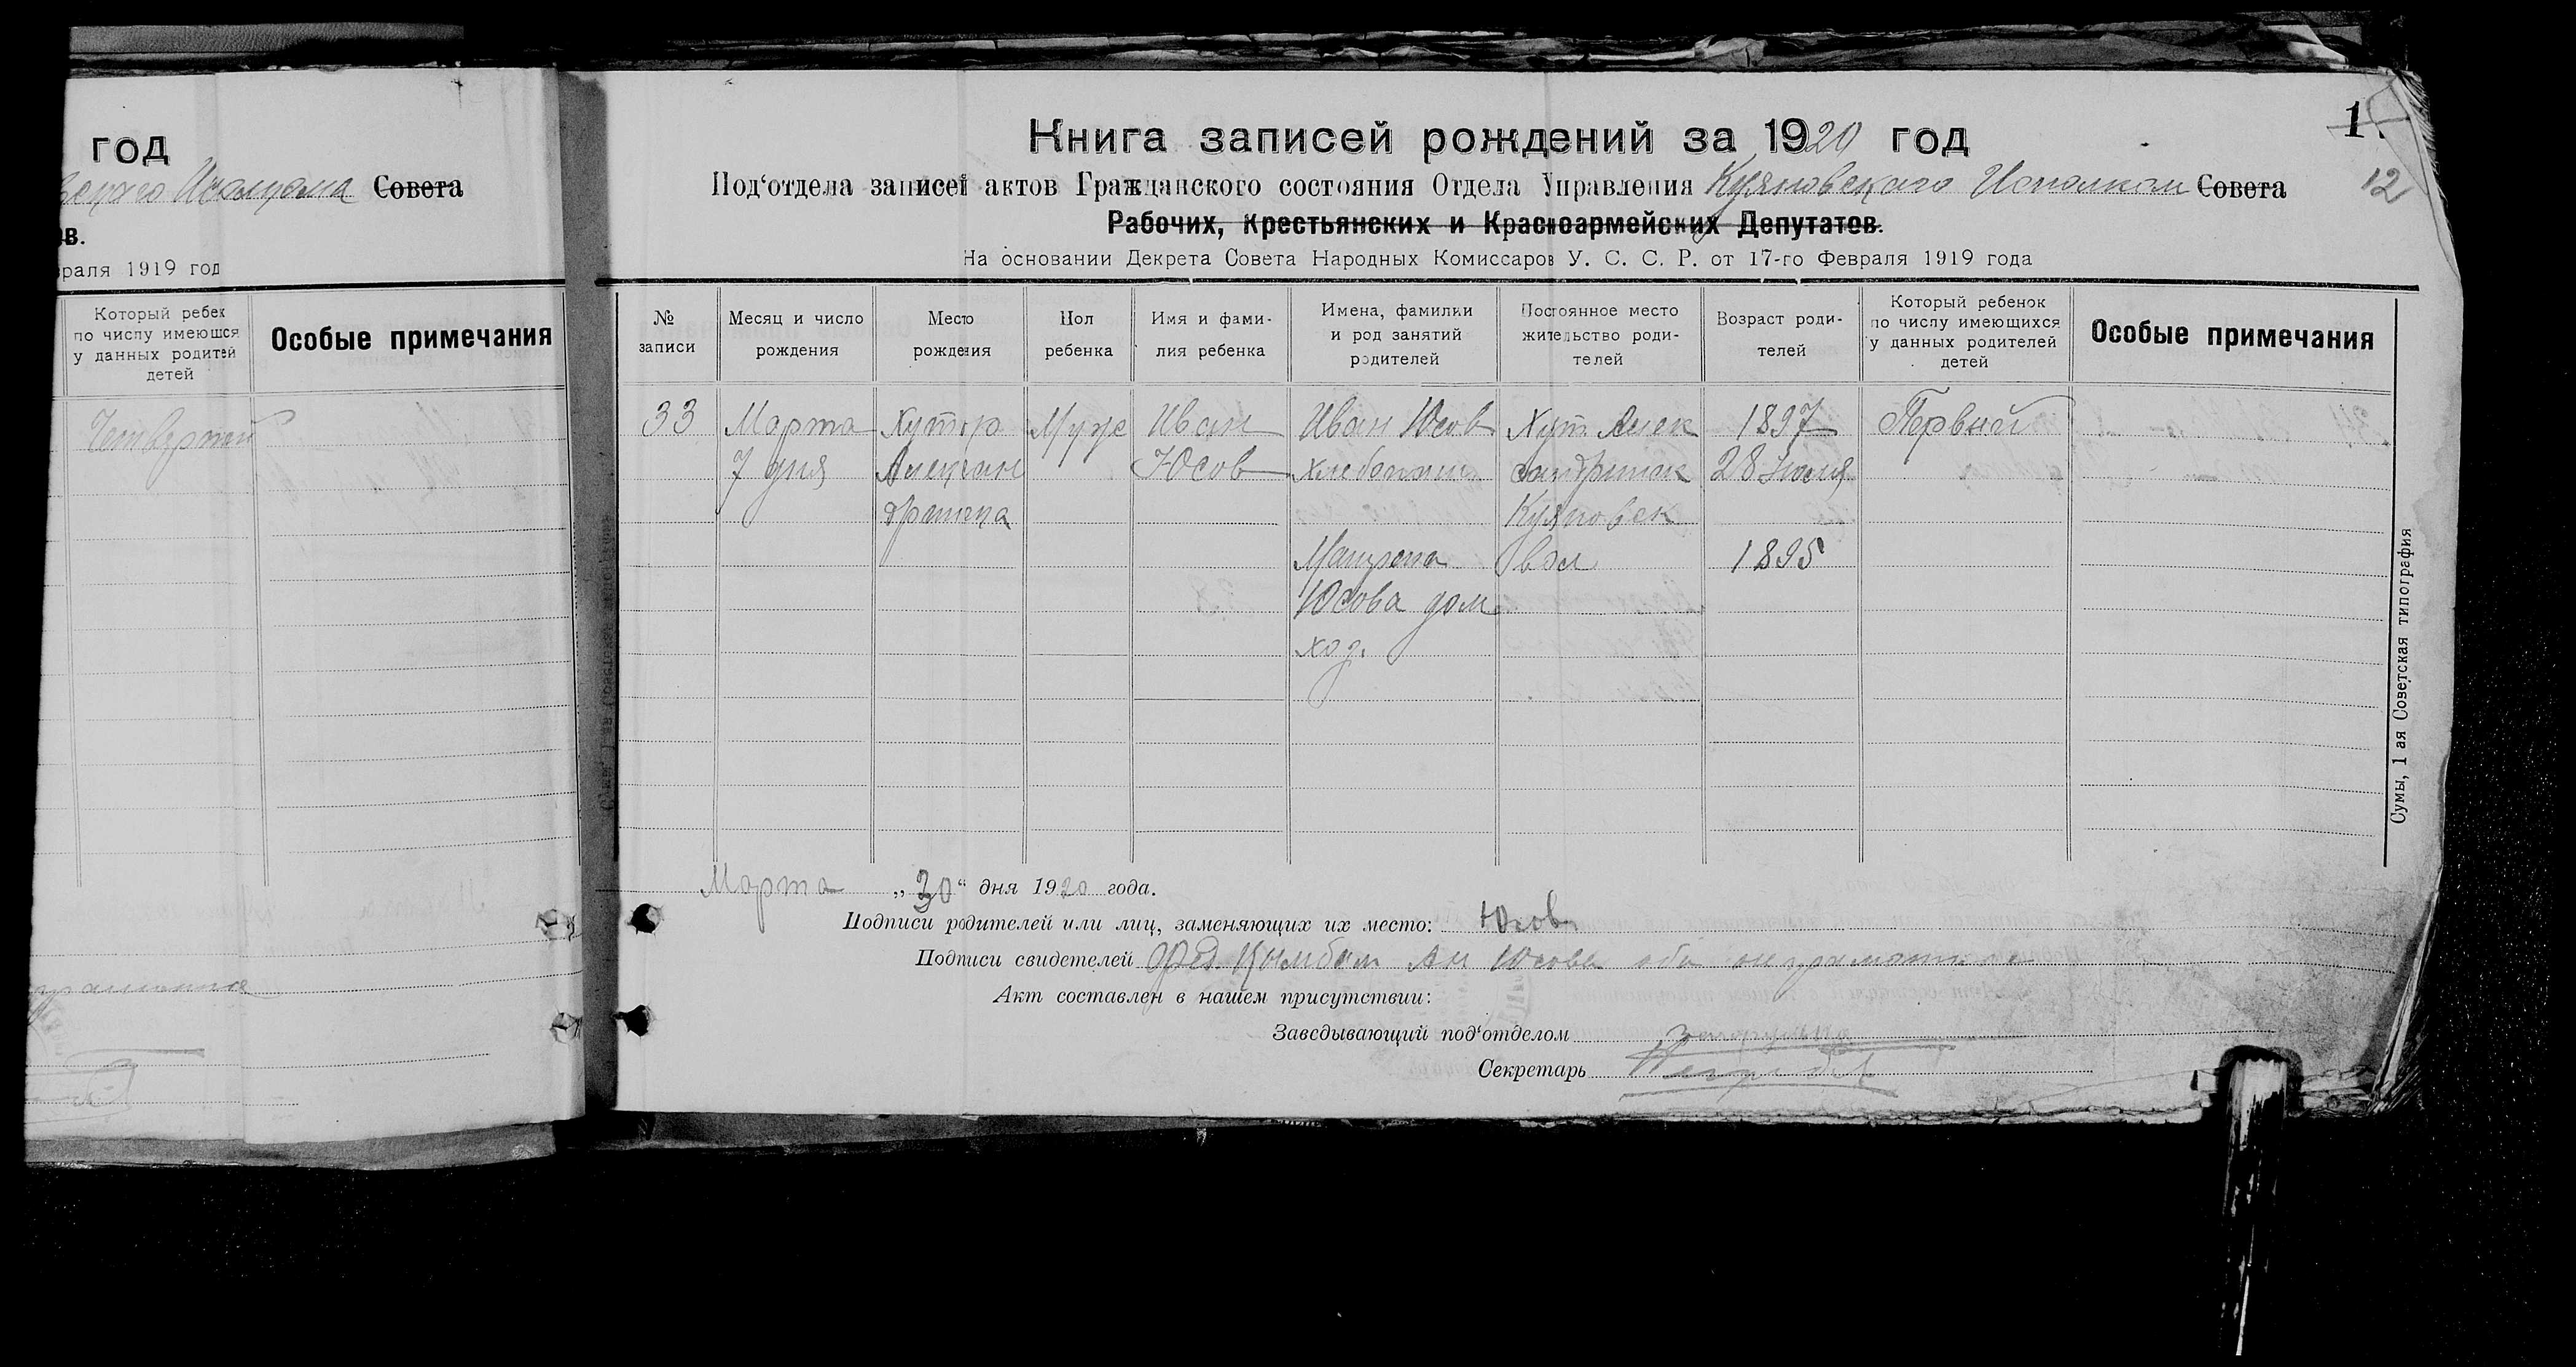 год
Совета
ов.
раля 1919 год
Который ребен
по числу имеющся
у данных родитей
детей
Особые примечания
Четвертый
Книга записей рождений за 1920 год
1.
12
Под‘отдела записей актов Гражданского состояния Отдела Управления Куяновского Исполком Совета
Рабочих, Крестьянских и Красноармейских Депутатов.
На основании Декрета Совета Народных Комиссаров У. С. С. Р. от 17-го Февраля 1919 года
№
записи
Месяц и число
рождения
Место
рождения
Пол
ребенка
Имя и фами-
лия ребенка
Имена, фамилии
и род занятий
родителей
Постоянное место
жительство роди-
телей
Возраст роди-
телей
Который ребенок
по числу имеющихся
у данных родителей
детей
Особые примечания
33 Марта Хутор Муж Иван Иван Юсов Хут. Алек 1897 Первый
7 дня Алексан Юсов хлебопаш сандринск 28 июля
дринка Куяновск
вол 1895
Юсова дом
хоз.
Марта „30“ дня 1920 года.
Подписи родителей или лиц, заменяющих их место: Юсов
Подписи свидетелей Юсова
Акт составлен в нашем присутствии:
Заведывающий под‘отделом
Секретарь
Сумы, 1 ая Советская типография